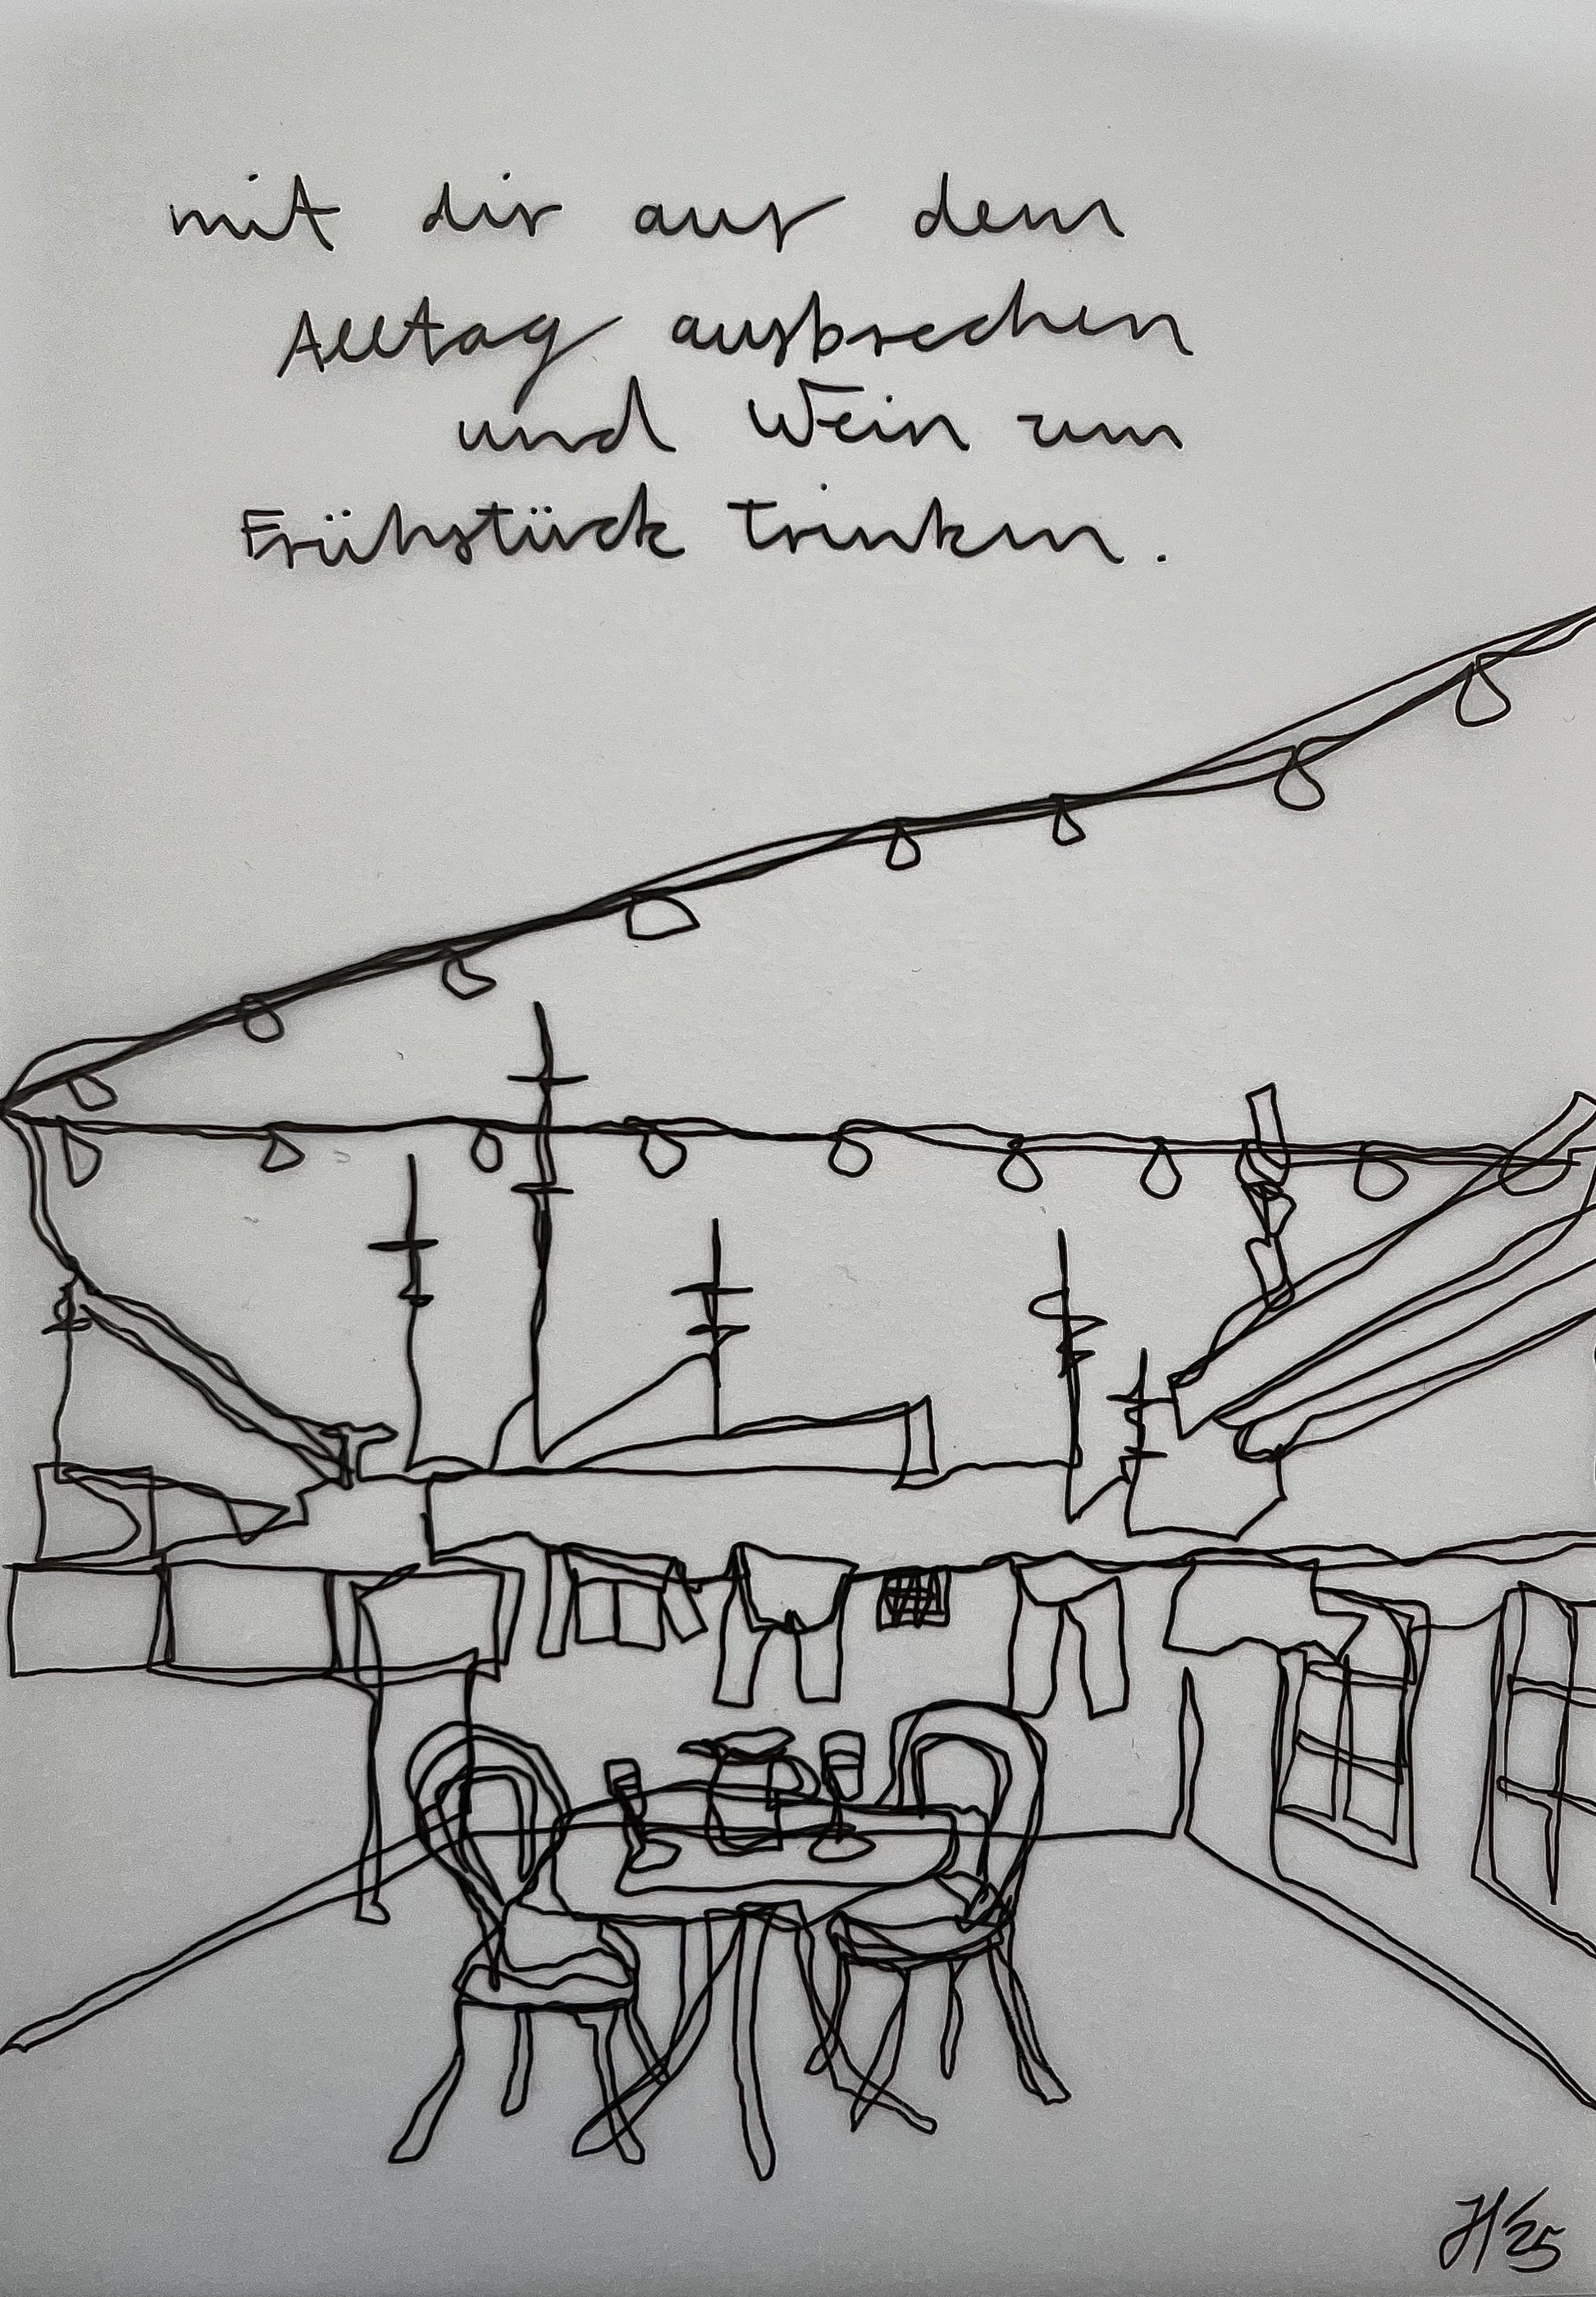 mit dir aus dem
Alltag ausbrechen
und Wein zum
Frühstück trinken.
JH/25